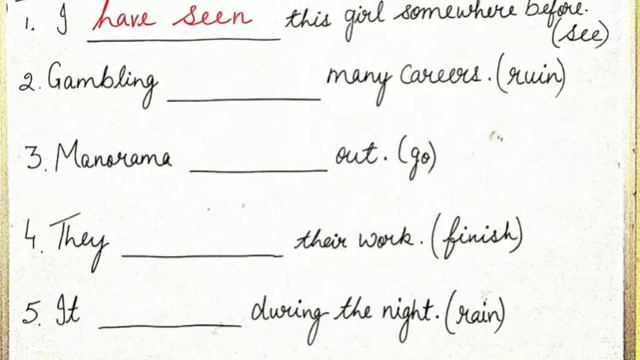 1. I have seen this girl somewhere before.
(see)
2. Gambling ____________ many careers. (ruin)
3. Manorama ____________ out. (go)
4. They ____________ their work. (finish)
5. It ____________ during the night. (rain)